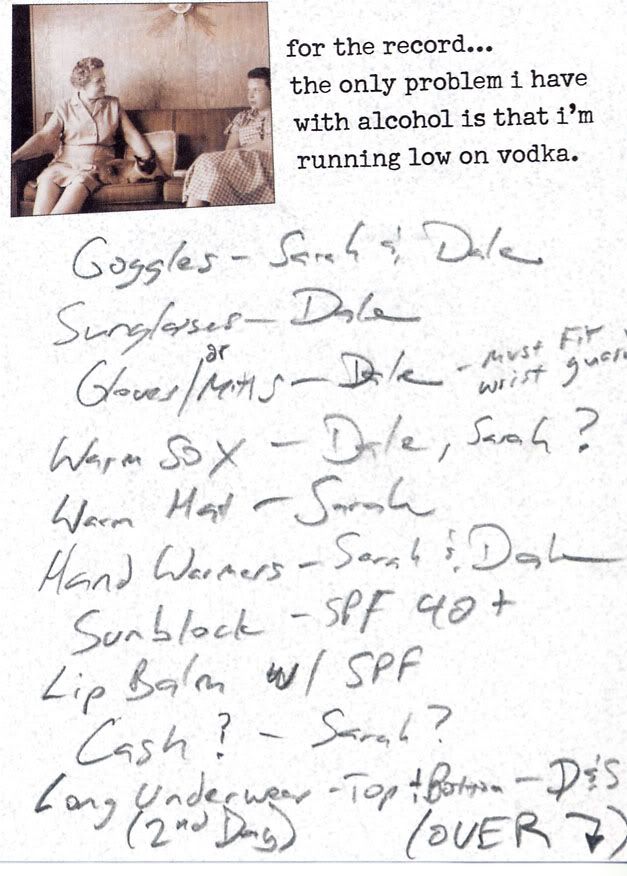 for the record...
the only problem i have
with alcohol is that i'm
running low on vodka.
Goggles - Sarah & Dale
Sunglasses - Dale
Gloves/or Mitts - Dale - must fit
wrist guar
Warm Sox - Dale, Sarah?
Warm Hat - Sarah
Hand Warmers - Sarah & Dale
Sunblock - SPF 40+
Lip Balm w/ SPF
Cash? - Sarah?
Long Underwear - Top & Bottom - D&S
(2nd Day) (OVER ↴)